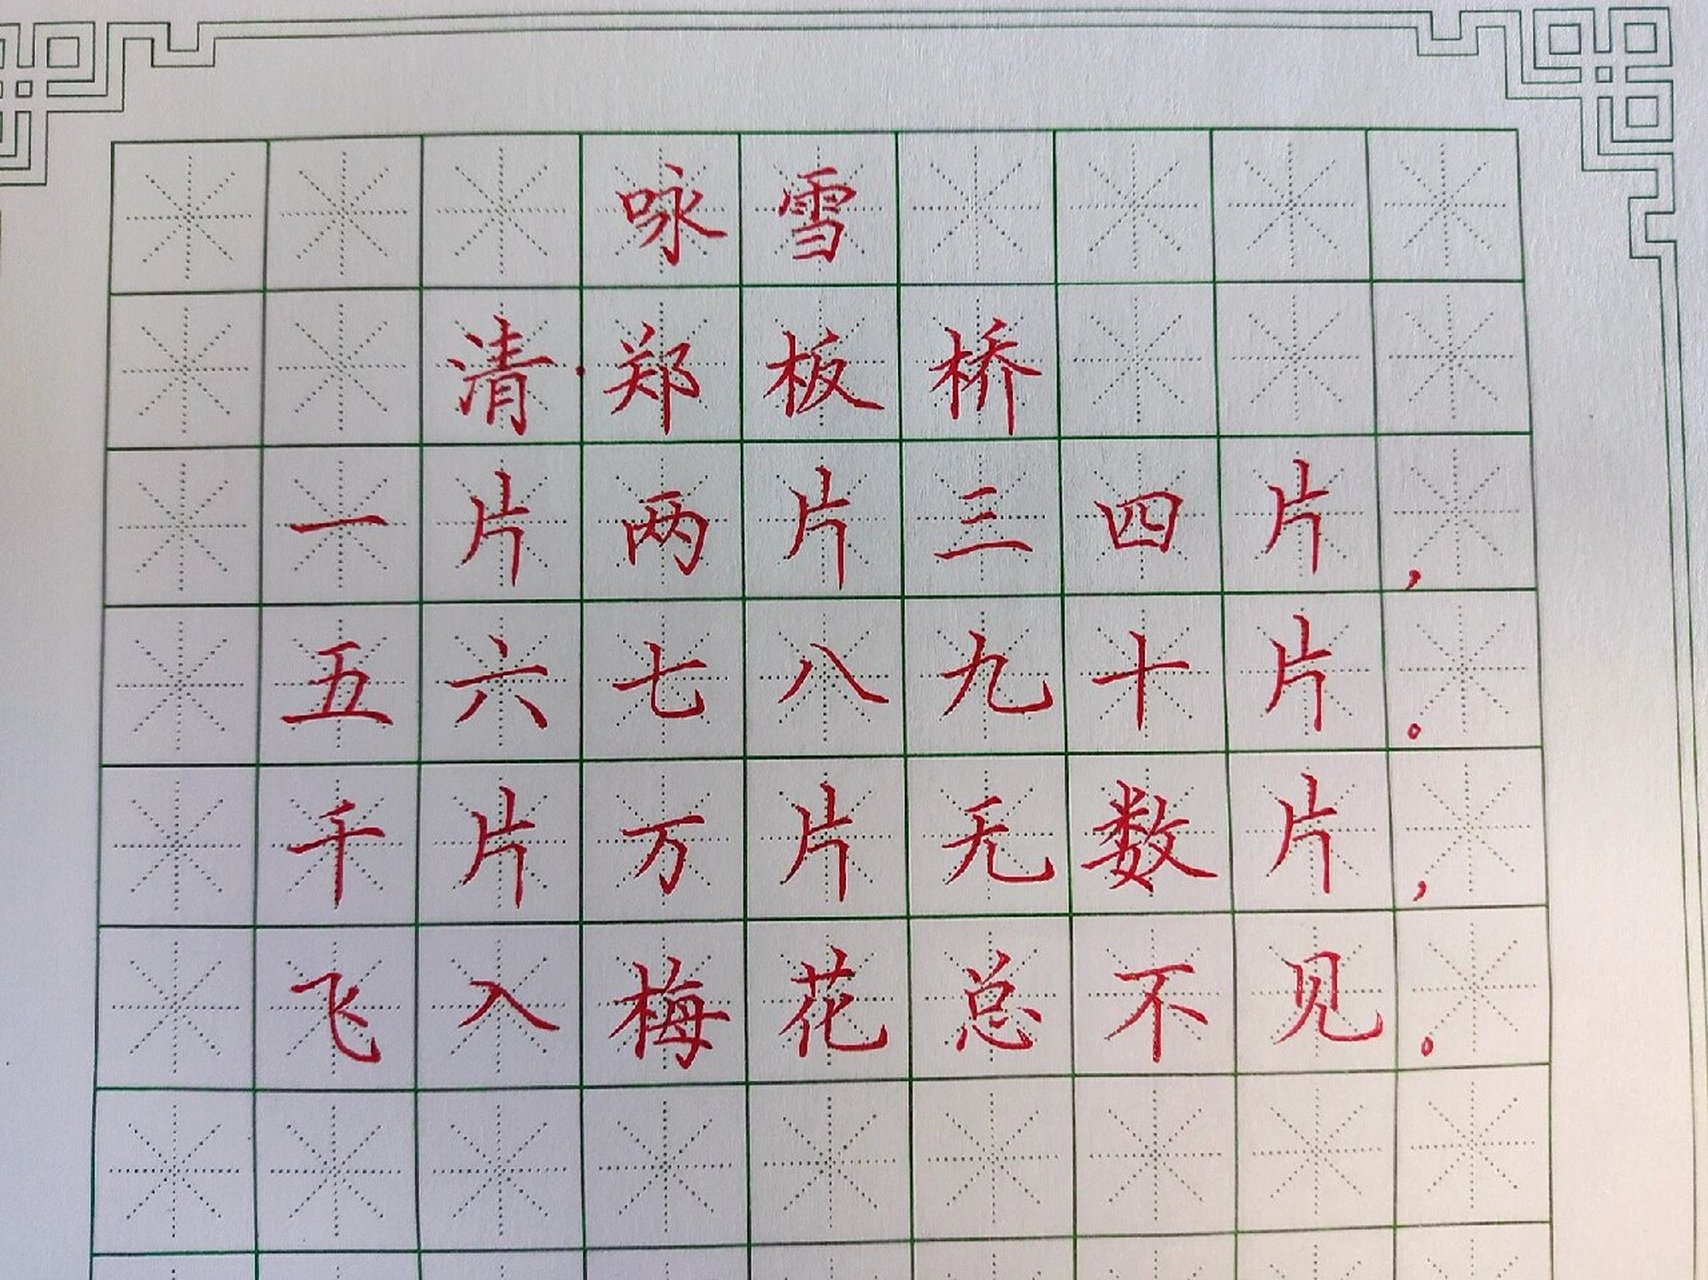 咏雪
清·郑板桥
一片两片三四片，
五六七八九十片。
千片万片无数片，
飞入梅花总不见。